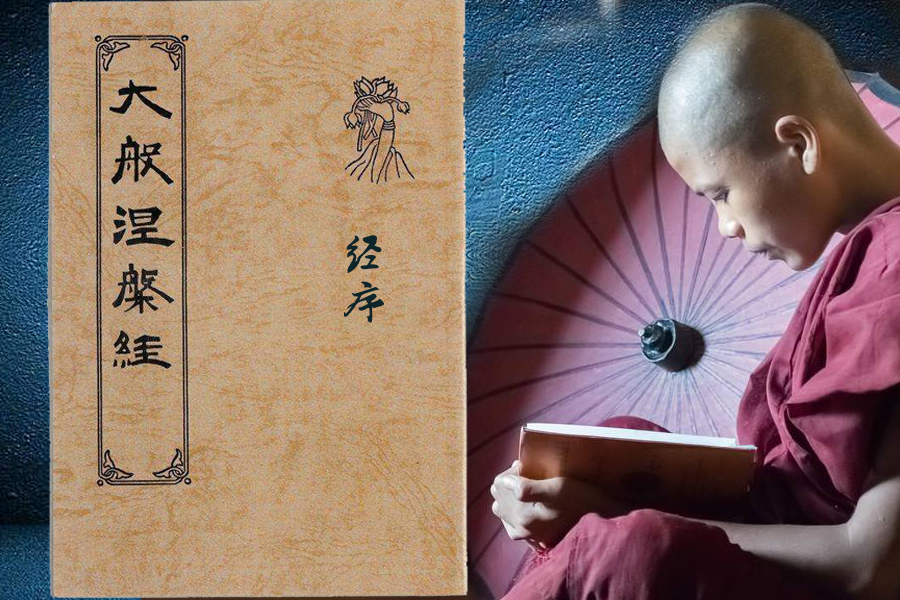 大般涅槃經
经序